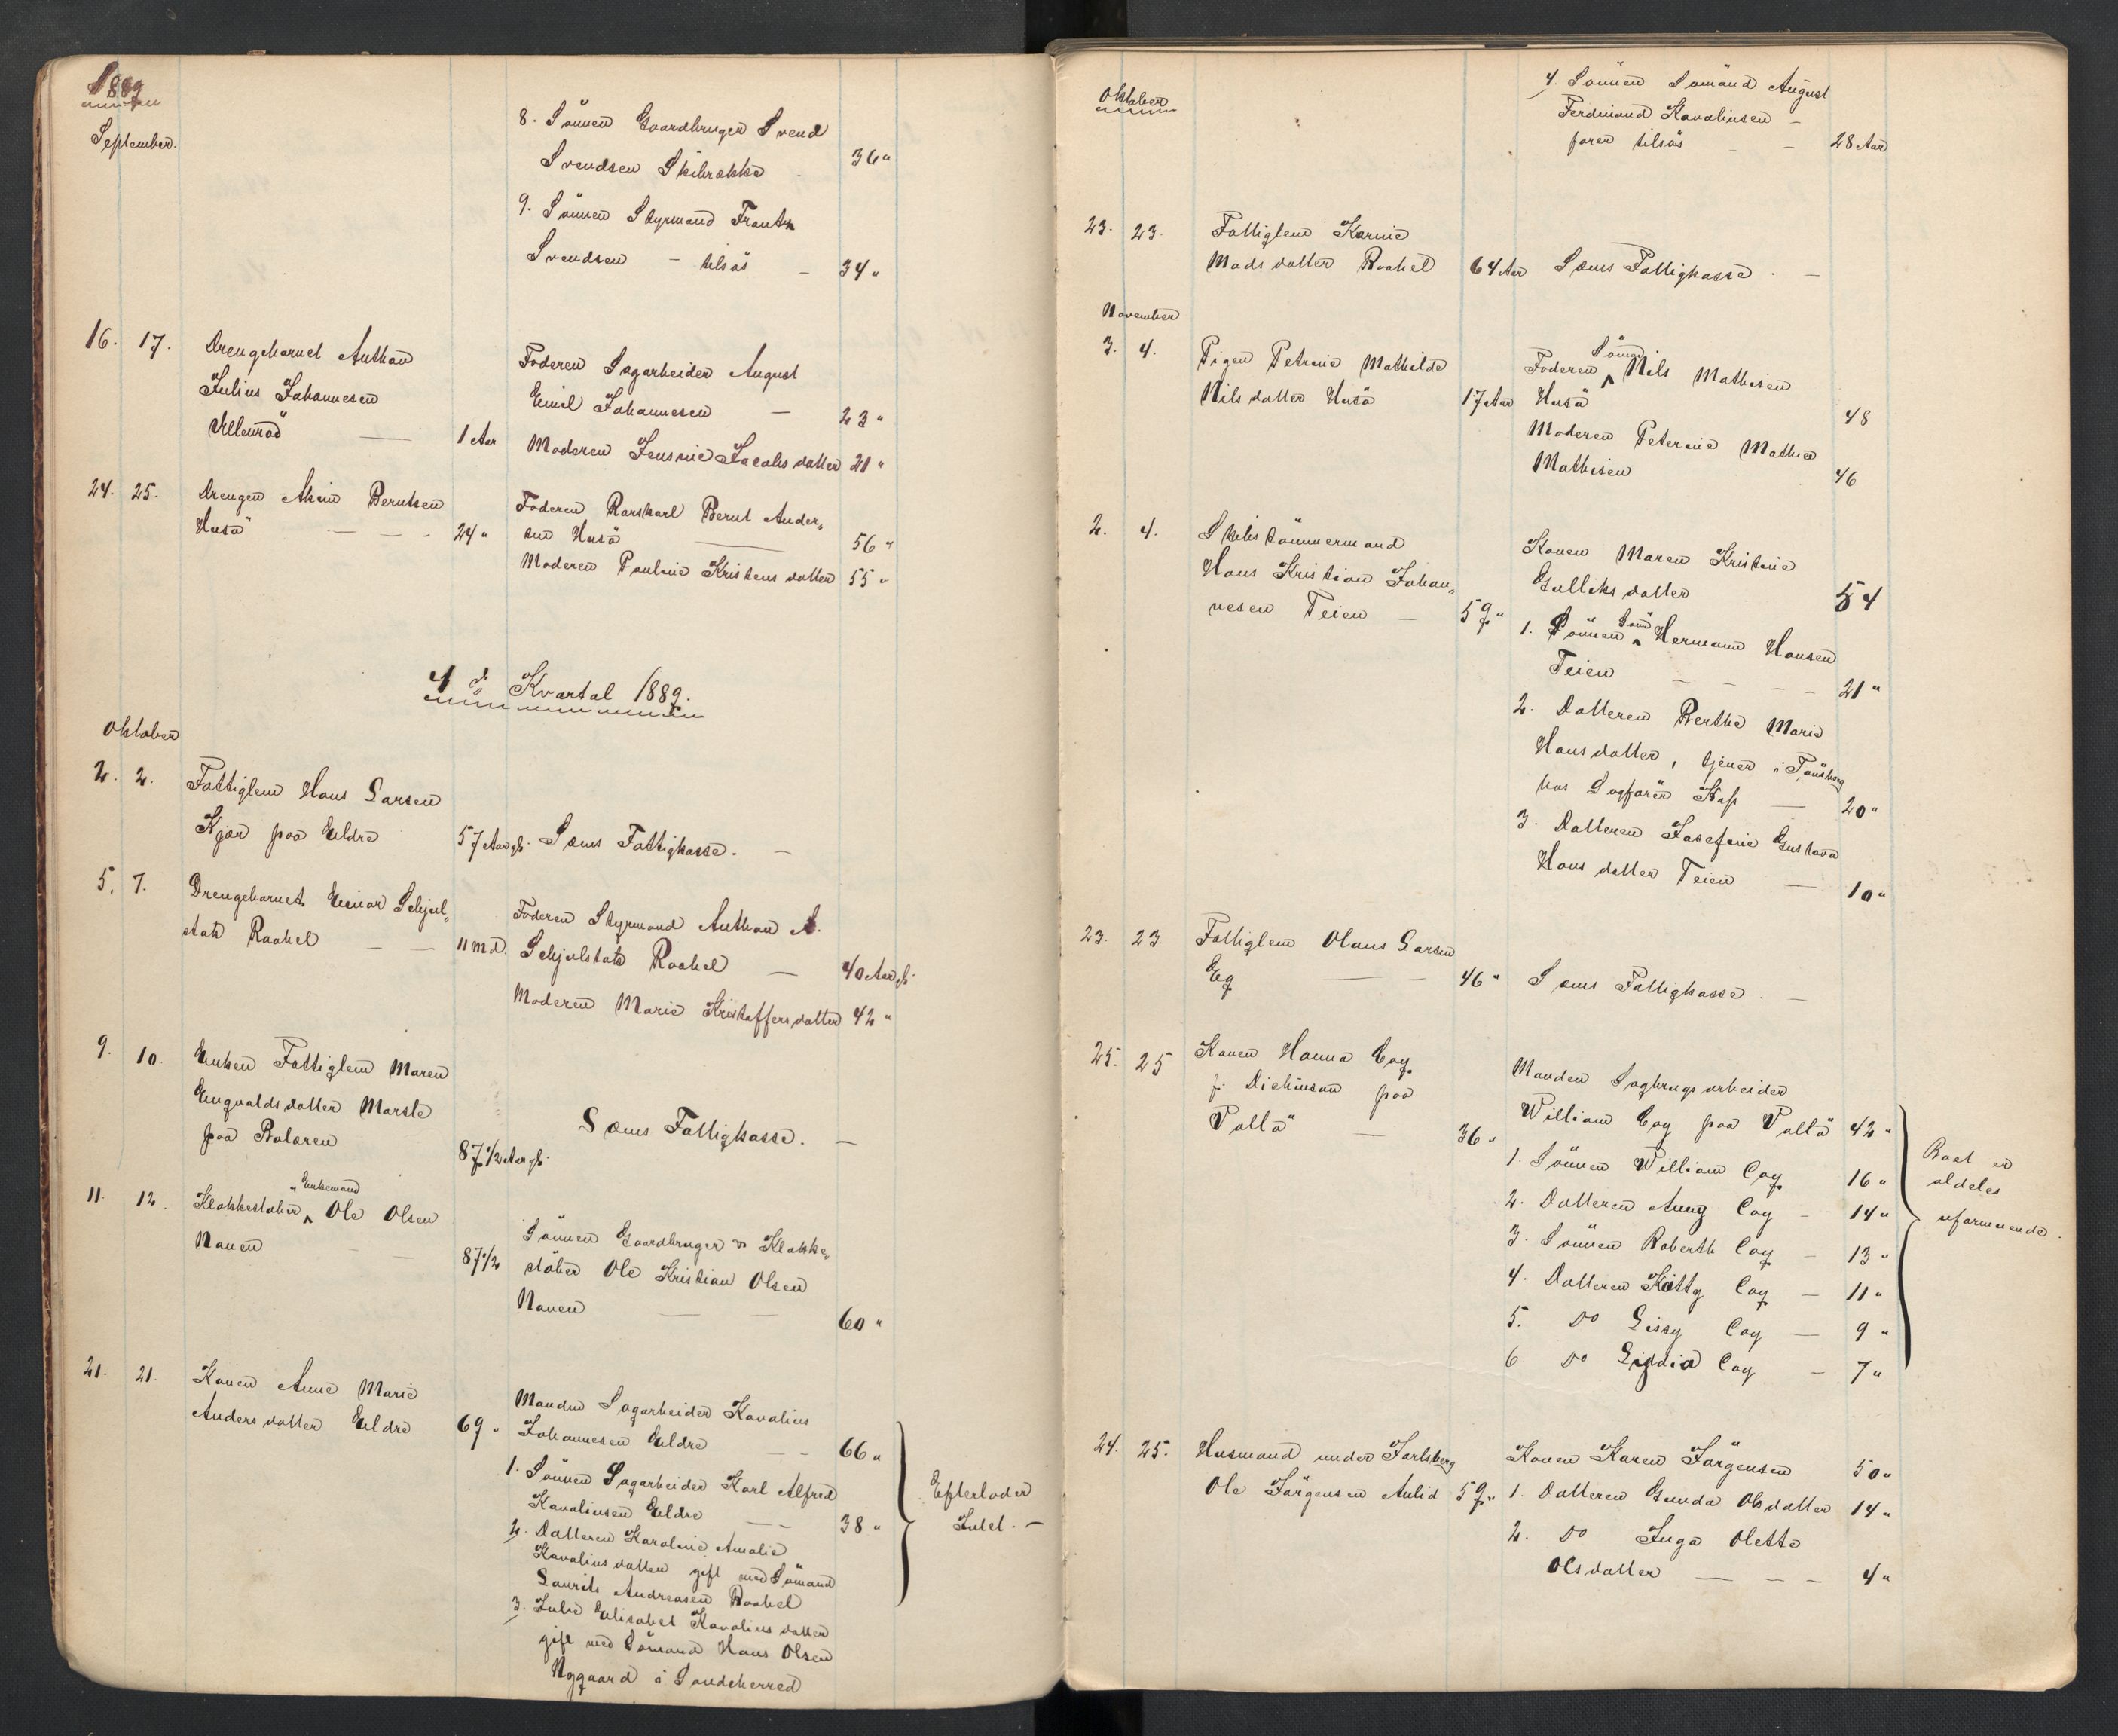 1889
September.
8. Sönnen Gaardbruger Svend
Svendsen Skibrække 36 "
9. Sönnen Styrmand Frants
Svendsen - tilsös - 34 "
16. 17. Drengebarnet Anthon
Julius Johannesen
Vellenröd — 1 Aar
Faderen Sagarbeider August
Emil Johannesen — 23 "
Moderen Jensine Jacobsdatter 21 "
24. 25. Drengen Berntsen
Husö — - - 24 "
Faderen Bernt Ander-
sen Husö — 56 "
Moderen Pauline Kristensdatter 55 "
4de Kvartal 1889.
Oktober
2. 2. Fattiglem Hans Larsen
Kjær paa Eldre 57 Aar gl.
Sæms Fattigkasse. —
5. 7. Drengebarnet Einar Schjel-
stok Raakel — — 11 md.
Faderen Styrmand Anthon A.
Schjelstok Raakel — 40 Aar gl.
Moderen Marie Kristoffersdatter 42 "
9. 10. Enken Fattiglem Maren
Engvaldsdatter
paa Bolæren 87 1/2 Aar gl.
Sæms Fattigkasse. —
11. 12. Klokkestöber, Enkemand Ole Olsen
Nauen — — 87 1/2
Sönnen Gaardbruger og Klokke-
stöber Ole Kristian Olsen
Nauen — — 60 "
21. 21. Konen Anne Marie
Andersdatter Eldre 69 "
Manden Sagarbeider Kavalius
Johannesen Eldre - - 66 "
1. Sönnen Sagarbeider Karl Alfred
Kavaliusen Eldre — — 38 "
2. Datteren Karoline Amalie
Kavaliusdatter gift med Sömand
Laurits Andreasen Raakel
3. Julie Elisabet Kavaliusdatter
gift med Sömand Hans Olsen
Nygaard i Sandeherred
Efterlader
Intet. —
Oktober
4. Sönnen Sömand August
Ferdinand Kavaliusen -
farer tilsös - - 28 Aar
23. 23. Fattiglem Karine
Madsdatter Raakel 64 Aar
Sæms Fattigkasse . —
November
3. 4. Pigen Petrine Mathilde
Nilsdatter Husö 17 Aar
Faderen Sömand Nils Mathisen
Husö 48
Moderen Peterine Mathea
Mathisen 46
2. 4. Skibstömmermand
Hans Kristian Johan-
nesen Teien — 59 "
Konen Maren Kristine
Gulliksdatter 54
1. Sönnen Sömd Hermann Hansen
Teien - - - - 21 "
2. Datteren Berthe Marie
Hansdatter, tjener i Tönsberg
hos Sagförer — 20 "
3. Datteren Josefine Gustava
Hansdatter Teien — 10 "
23. 23 Fattiglem Olaus Larsen
Eg — — 46 "
Sæms Fattigkasse . —
25. 25 Konen Hanna Coy
f. Dickinson paa
Vallö — 36 "
Manden Sagbrugsarbeider
William Coy paa Vallö 42 "
1. Sönnen William Coy 16 "
2. Datteren Anny Coy - 14 "
3. Sönnen Roberth Coy — 13 "
4. Datteren Kitty Coy — 11 "
5. Do Lissy Coy — 9 "
6. Do Lydia Coy — 7 "
Boet er
aldeles
uformuende.
24. 25. Husmand under Jarlsberg
Ole Jörgensen Aulid 59 "
Konen Karen Jörgensen 50 "
1. Datteren Gunda Olsdatter 14 "
2. Do Inga Olette
Olsdatter — — - 4 "